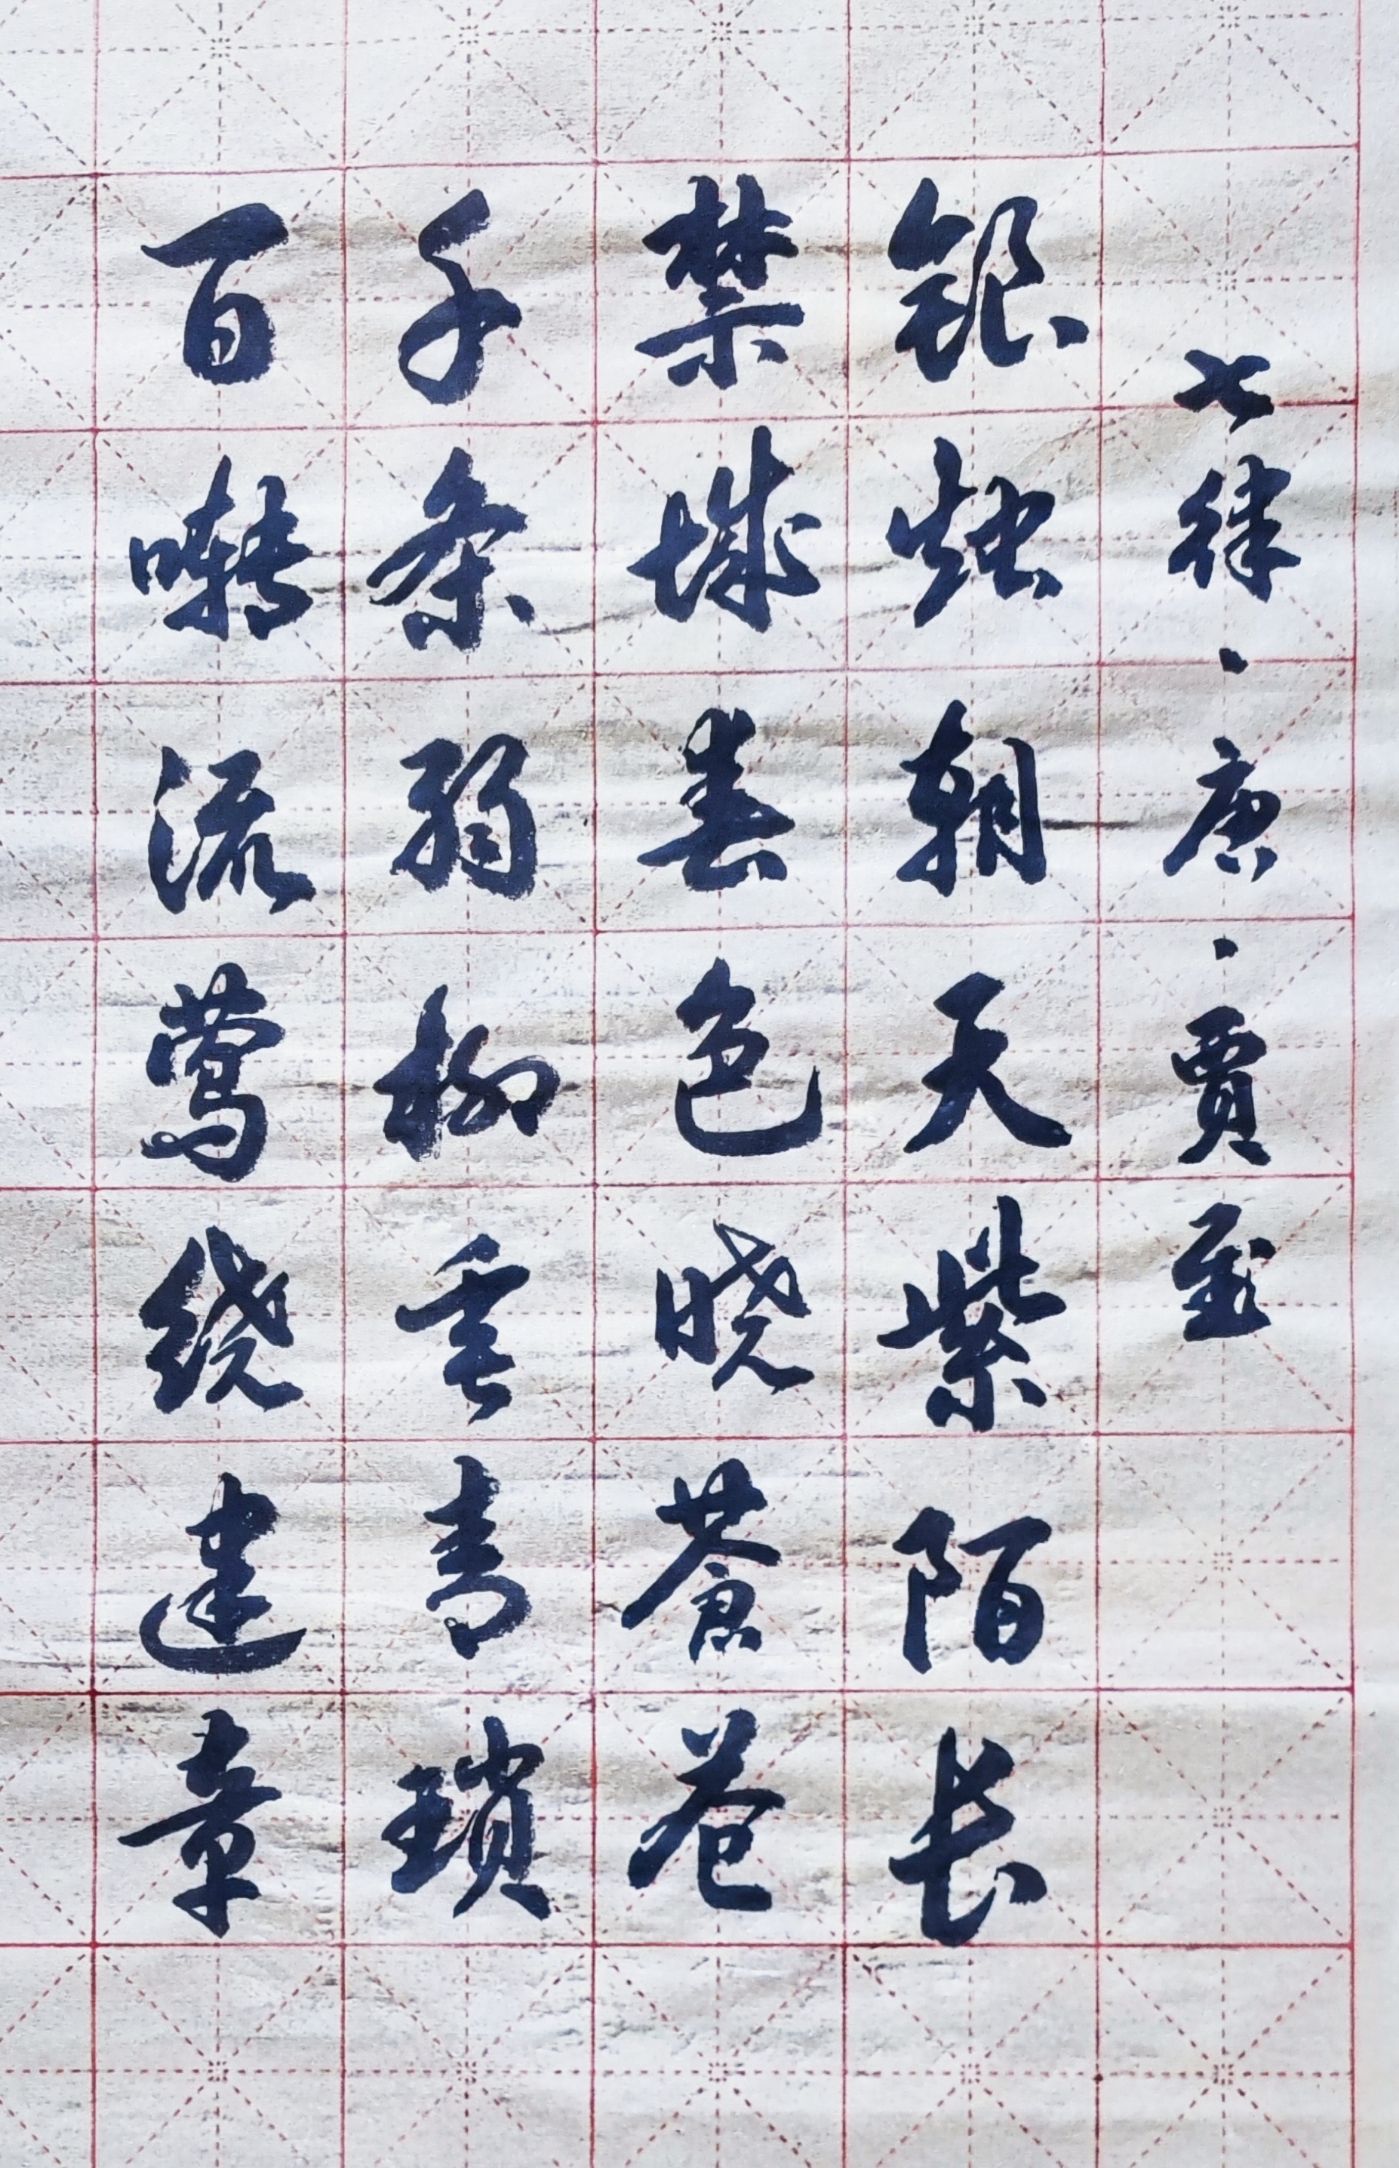 七律·唐·贾至
银烛朝天紫陌长
禁城春色晓苍苍
千条弱柳垂青琐
百啭流莺绕建章